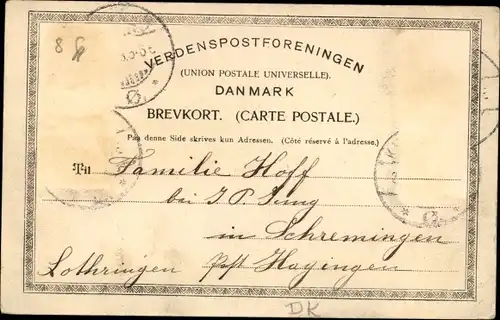 VERDENSPOSTFORENINGEN
(UNION POSTALE UNIVERSELLE).
DANMARK
BREVKORT. (CARTE POSTALE.)
Paa denne Side skrives kun Adressen. (Côté réservé à l'adresse.)
Til Familie Hoff
bei J. P. Jung
in Schremingen
Lothringen Post Hayingen
DK